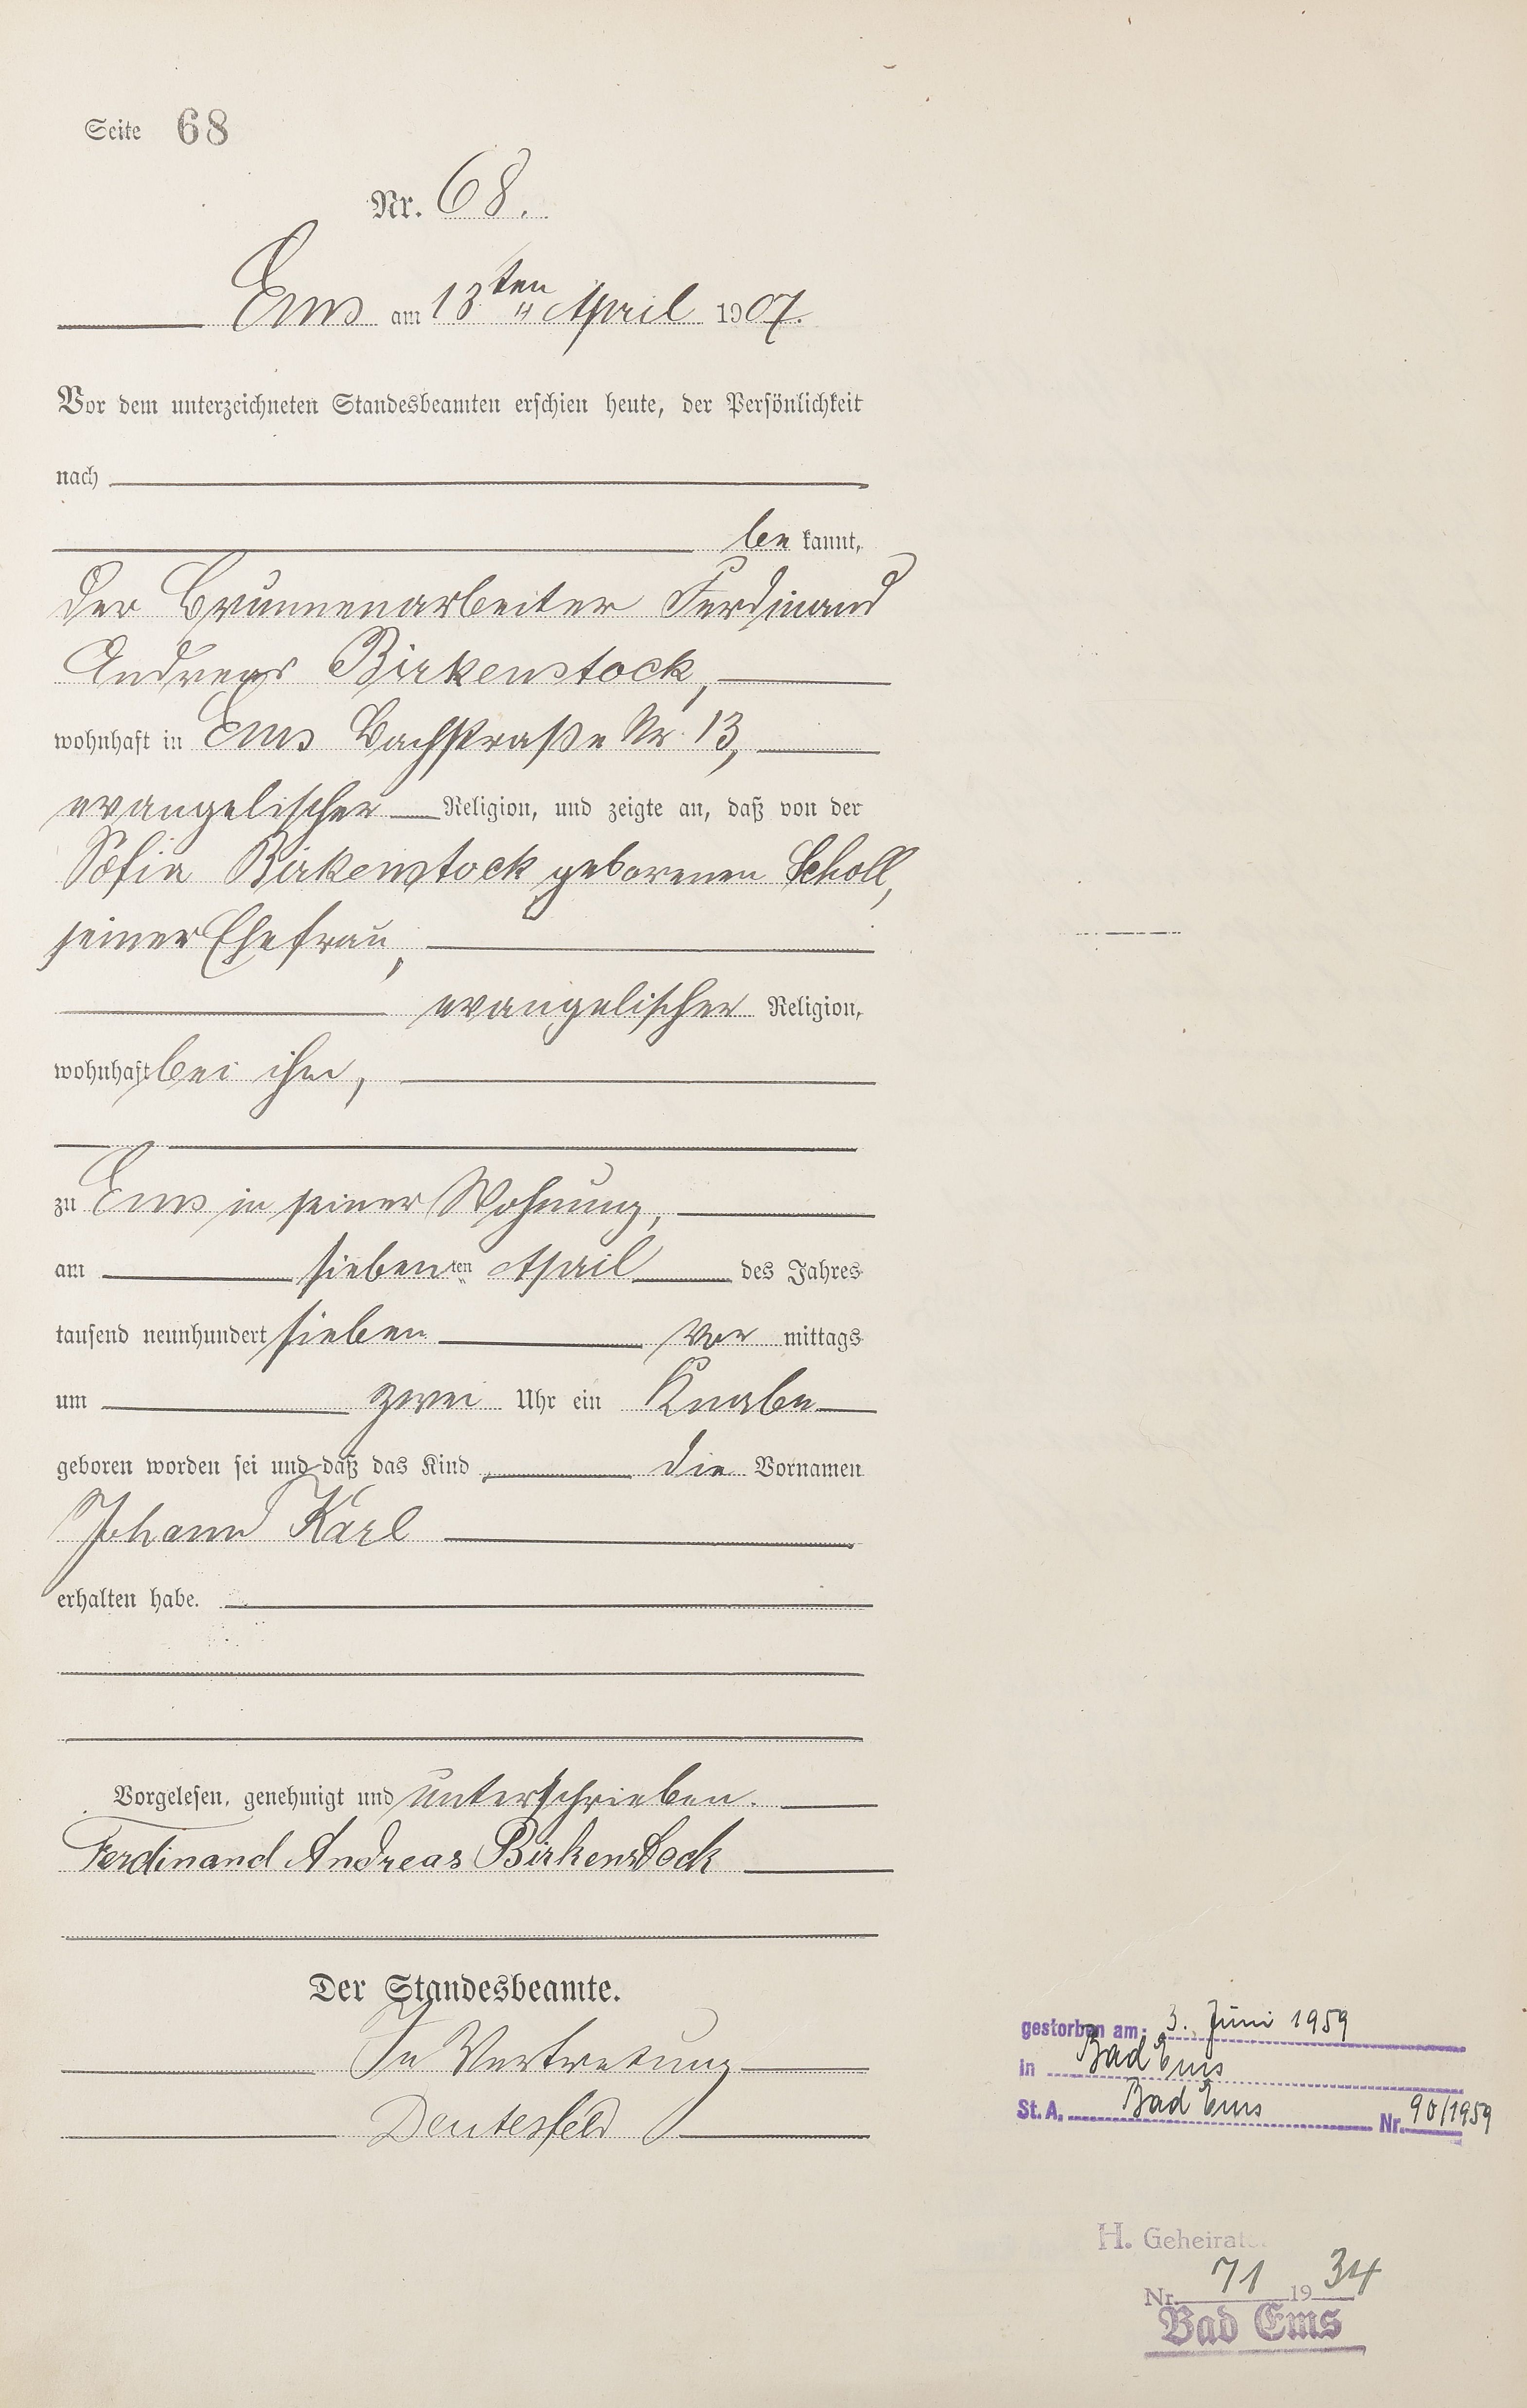 Seite 68
Nr. 68.
Ems am 13ten April 1907.
Vor dem unterzeichneten Standesbeamten erschien heute, der Persönlichkeit
nach
bekannt,
der Brunnenarbeiter Ferdinand
Andreas Birkenstock,
wohnhaft in Ems Bachstraße Nr. 13,
evangelischer Religion, und zeigte an, daß von der
Sofia Birkenstock geborenen Scholl,
seiner Ehefrau,
evangelischer Religion,
wohnhaft bei ihm,
zu Ems in seiner Wohnung,
am siebenten April des Jahres
tausend neunhundert sieben Vormittags
um zwei Uhr ein Knabe
geboren worden sei und daß das Kind die Vornamen
Johann Karl
erhalten habe.
Vorgelesen, genehmigt und unterschrieben.
Ferdinand Andreas Birkenstock
Der Standesbeamte.
In Vertretung
Deutesfeld
gestorben am: 3. Juni 1959
in Bad Ems
St. A. Bad Ems Nr. 90/1959
H. Geheiratet
Nr. 71 1934
Bad Ems